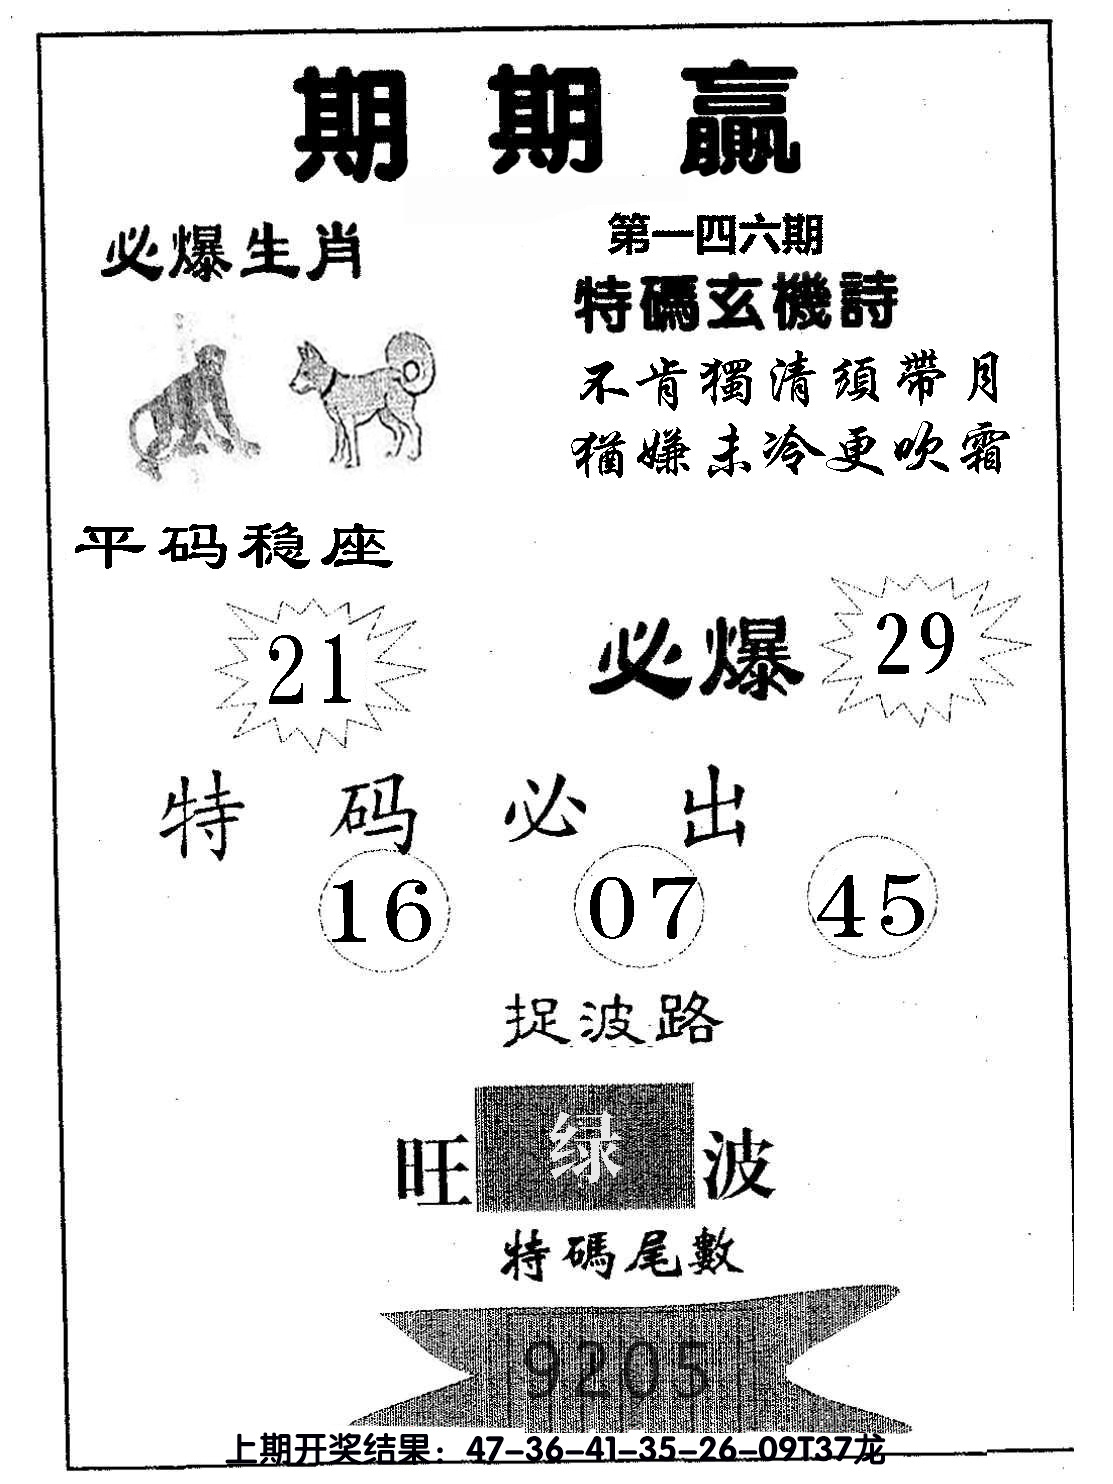 期期赢
必爆生肖
第一四六期
特碼玄機詩
不肯獨清須帶月
猶嫌未冷更吹霜
平码稳座
21
必爆 29
特码必出
16 07 45
捉波路
旺 绿 波
特碼尾數
9205
上期开奖结果：47-36-41-35-26-09T37龙